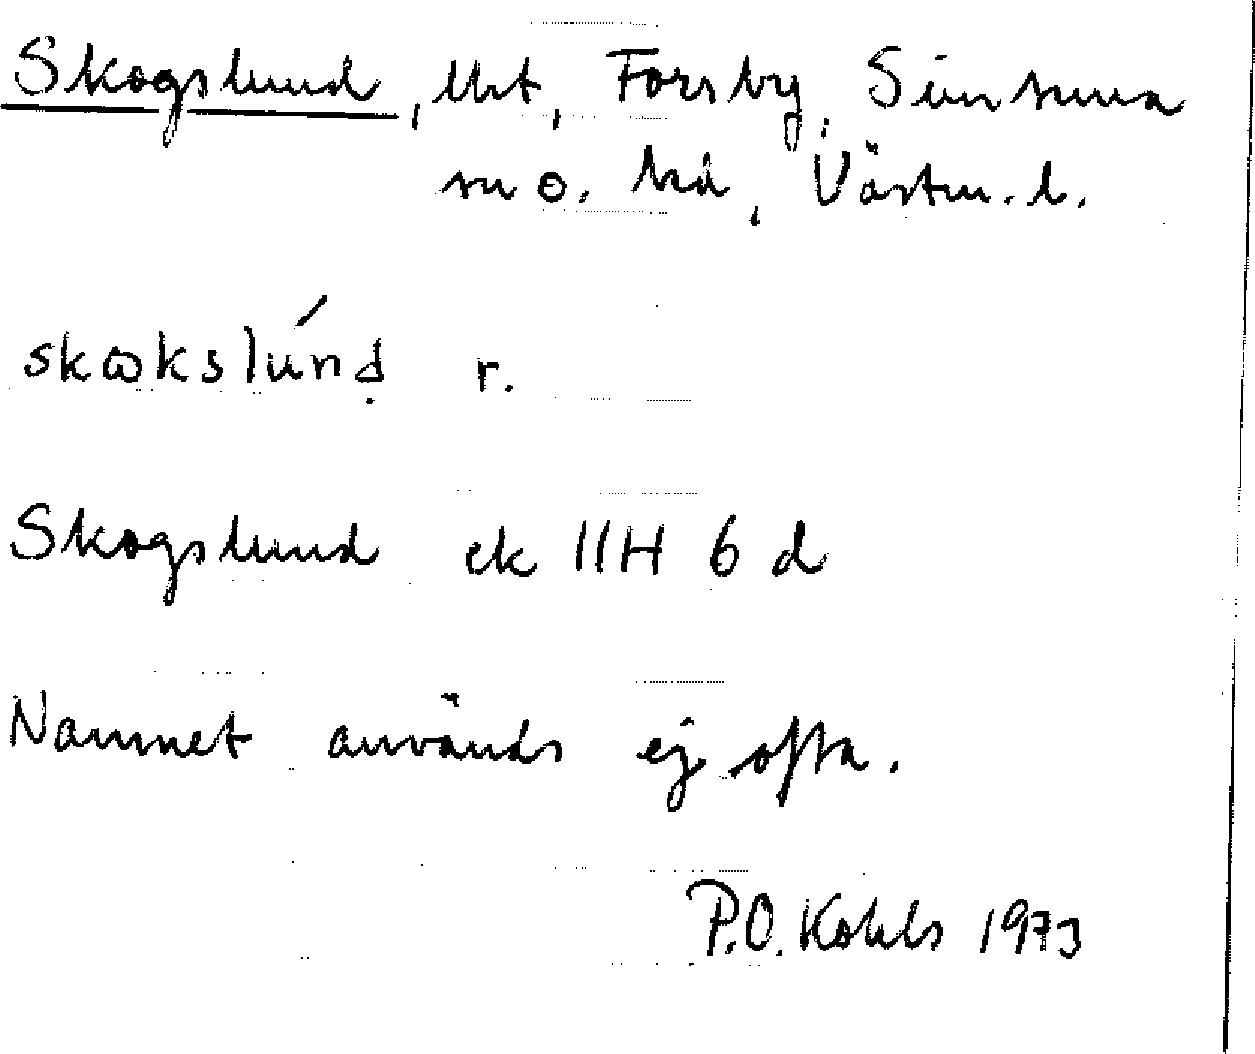 Skogslund, lht, Forsby, Simtuna
sn o. hd, Västm. l.
skωkslúnḍ r.
Skogslund ek 11H 6 d
Namnet används ej ofta.
P.O. Kohls 1973